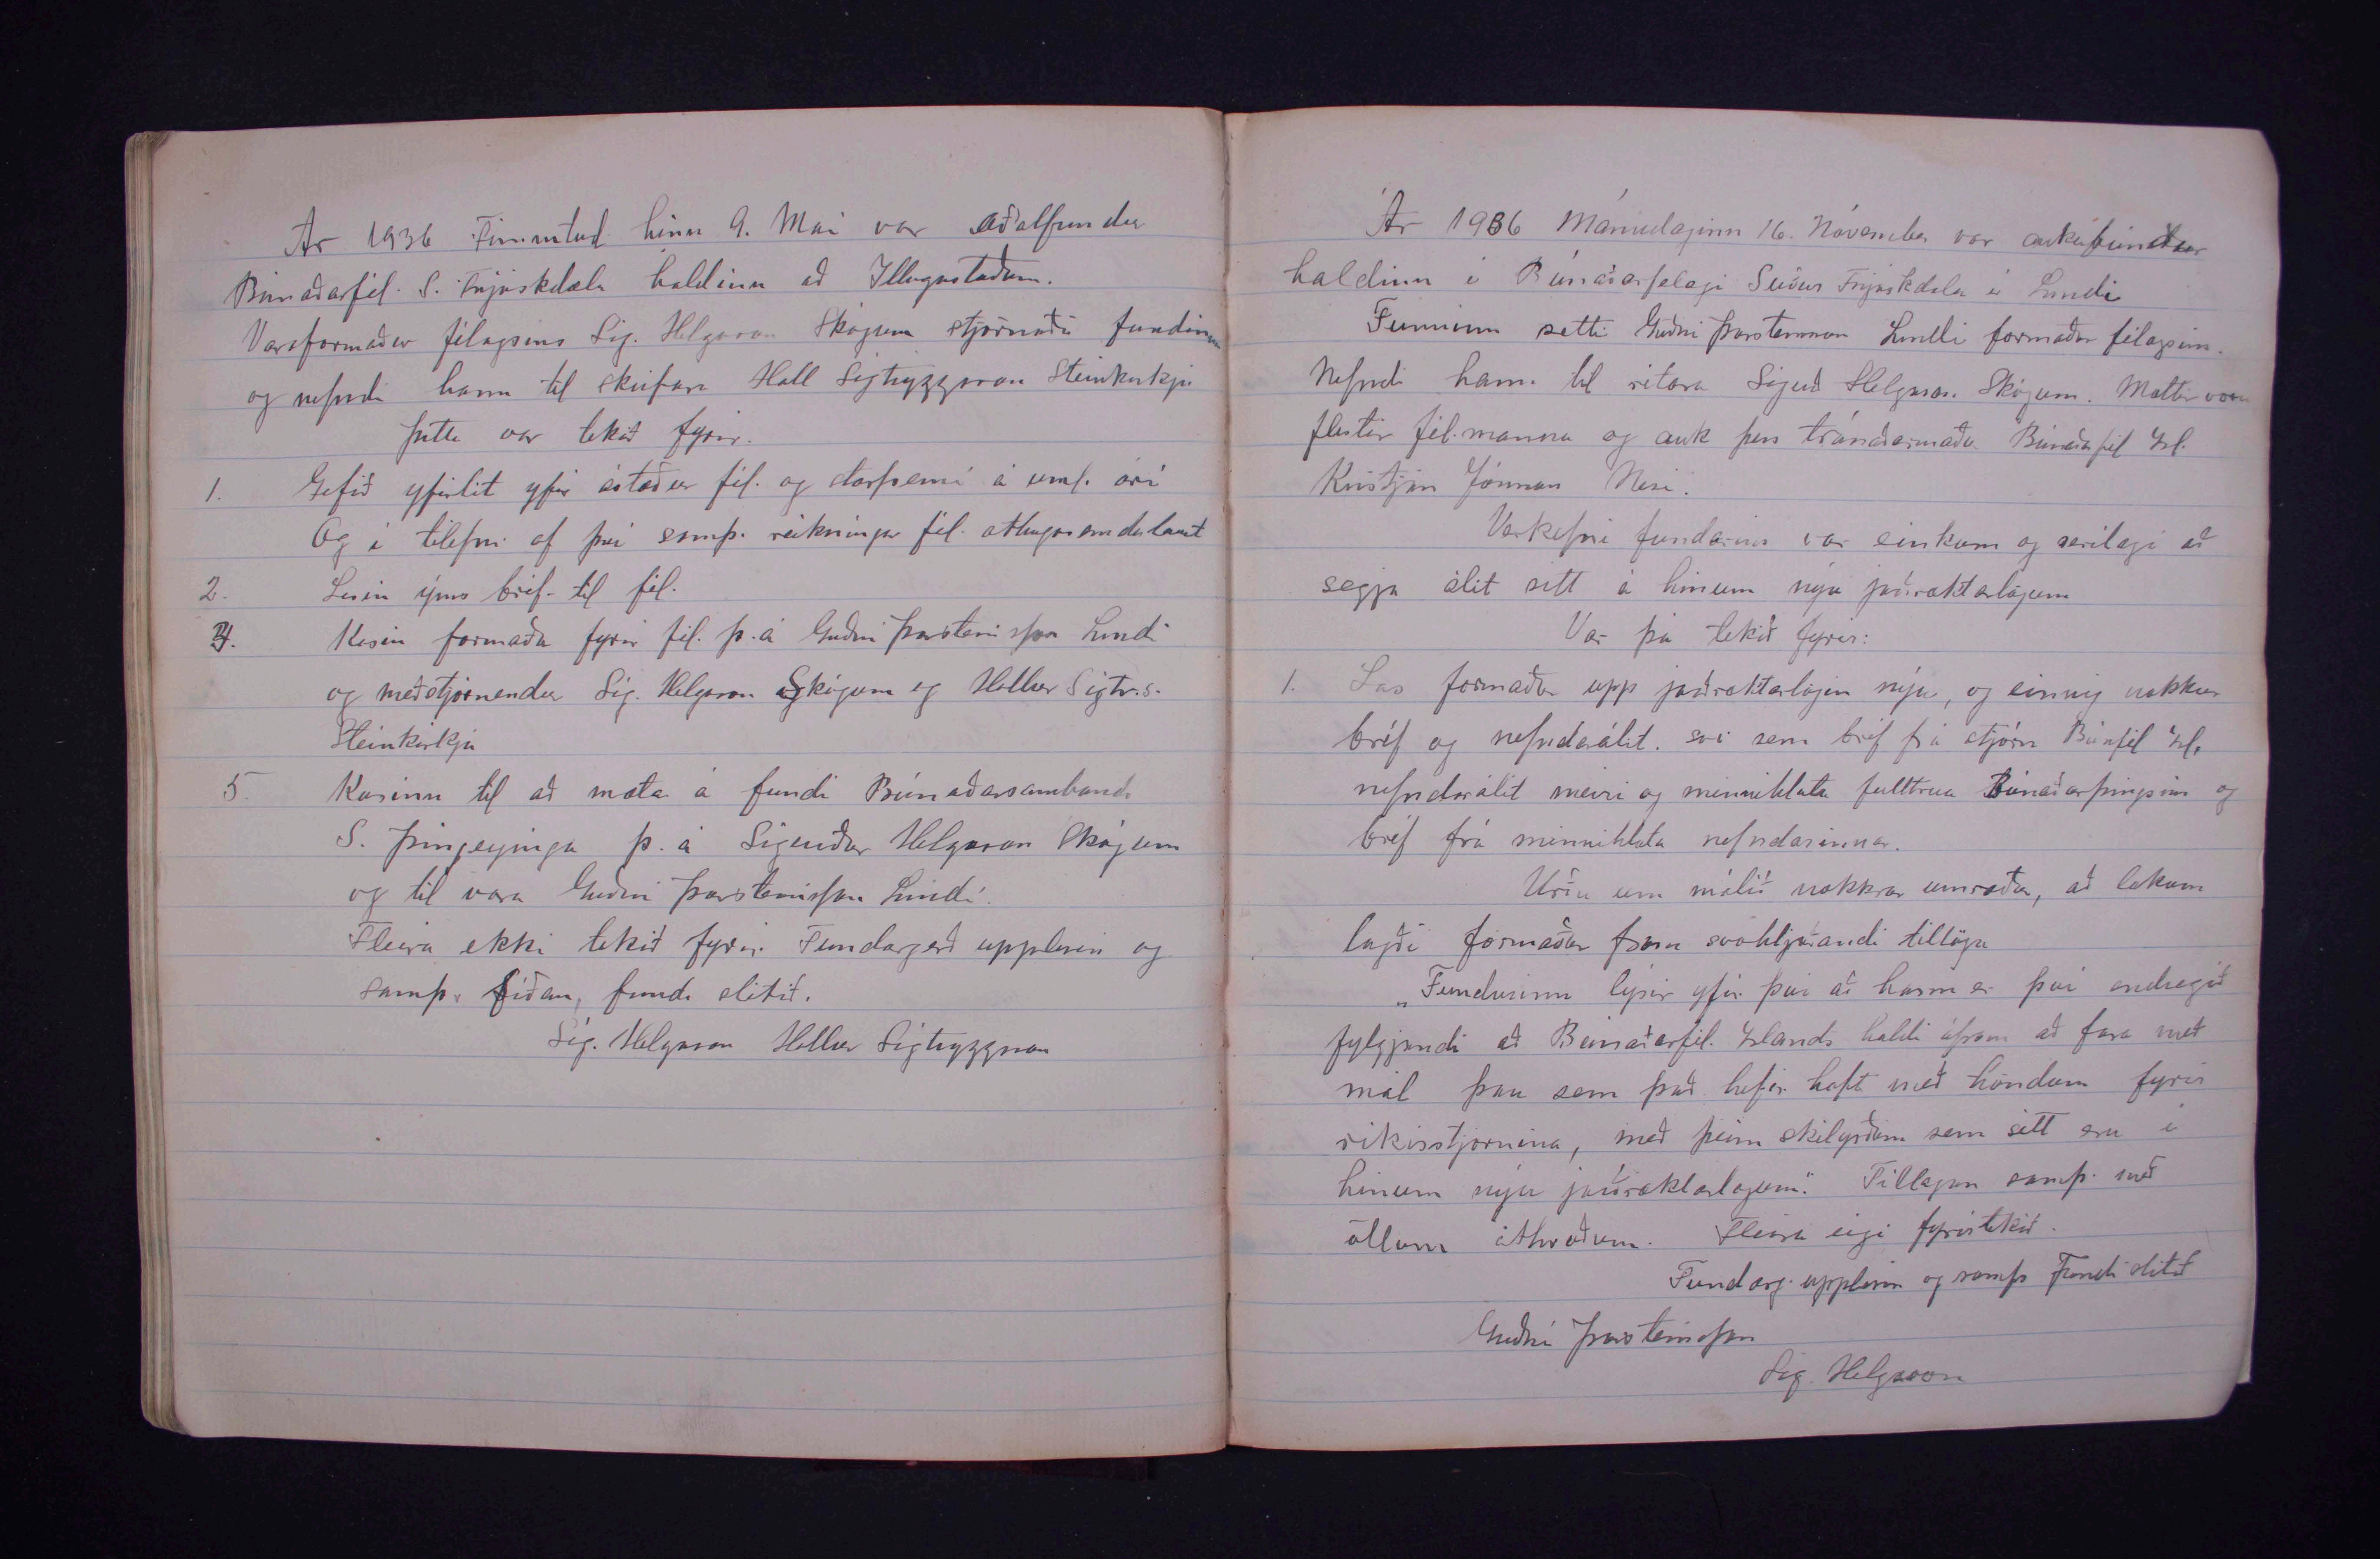 Ár 1936 Fimmtud hinn 9. Mai var aðalfundur
Búnaðarfél. S. Fnjóskdæla haldinn að Illugastöðum.
Varaformaður félagsins Sig. Helgason Skógum stjórnaði fundinum
og nefndi hann til skrifara Hall Sigtryggsson Steinkirkju
þetta var tekið fyrir.
1. Gefið yfirlit yfir ástæður fél. og starfsemi á uml. ári
Og í tilefni af því samþ. reikningar fél. athugasemdalaust
2. Lesin ýms bréf til fél.
3. Kosin formaður fyrir fél. þ. á Guðni Þorsteinsson Lundi
og meðstjórnendur Sig. Helgason Skógum og Hallur Sigtr.s.
Steinkirkju
5. Kosinn til að mæta á fundi Búnaðarsambands
S. Þingeyinga þ. á Sigurður Helgason Skógum
og til vara Guðni Þorsteinsson Lundi.
Fleira ekki tekið fyrir. Fundargerð upplesin og
samþ. Síðan, fundi slitið.
Sig. Helgason Hallur Sigtryggsson
Ár 1936 Mánudaginn 16. Nóvember var aukafundur
haldinn í Búnaðarfelagi Suður Fnjóskdæla í Lundi
Fundinn setti Guðni Þorsteinsson Lundi formaður félagsins.
Nefndi hann til ritara Sigurð Helgason Skógum. Mættir voru
flestir fél.manna og auk þess trúnaðarmaður Búnaðarfél Ísl.
Kristján Jónsson Nesi.
Verkefni fundarins var einkum og serílagi að
segja álit sitt á hinum nýju jarðræktarlögum
Var þá tekið fyrir:
1. Las formaður upp jarðræktarlögin nýju, og einnig nokkur
bréf og nefndarálit. svo sem bréf frá stjórn Búnfél Ísl.
nefndarálit meiri og minnihluta fulltrua Búnaðarþingsins og
bréf frá minnihluta nefndarinnar.
Urðu um málið nokkrar umræður, að lokum
lagði formaður fram svohljóðandi tillögu
„Fundurinn lýsir yfir því að hann er því eindregið
fylgjandi að Búnaðarfél. Íslands haldi áfram að fara með
mál þau sem það hefir haft með höndum fyrir
ríkisstjórnina, með þeim skilyrðum sem sett eru í
hinum nýju jarðræktarlögum". Tillagan samþ. með
öllum atkvæðum. Fleira eigi fyrirtekið.
Fundarg. upplesin og samþ Fundi slitið
Guðni Þorsteinsson
Sig. Helgason